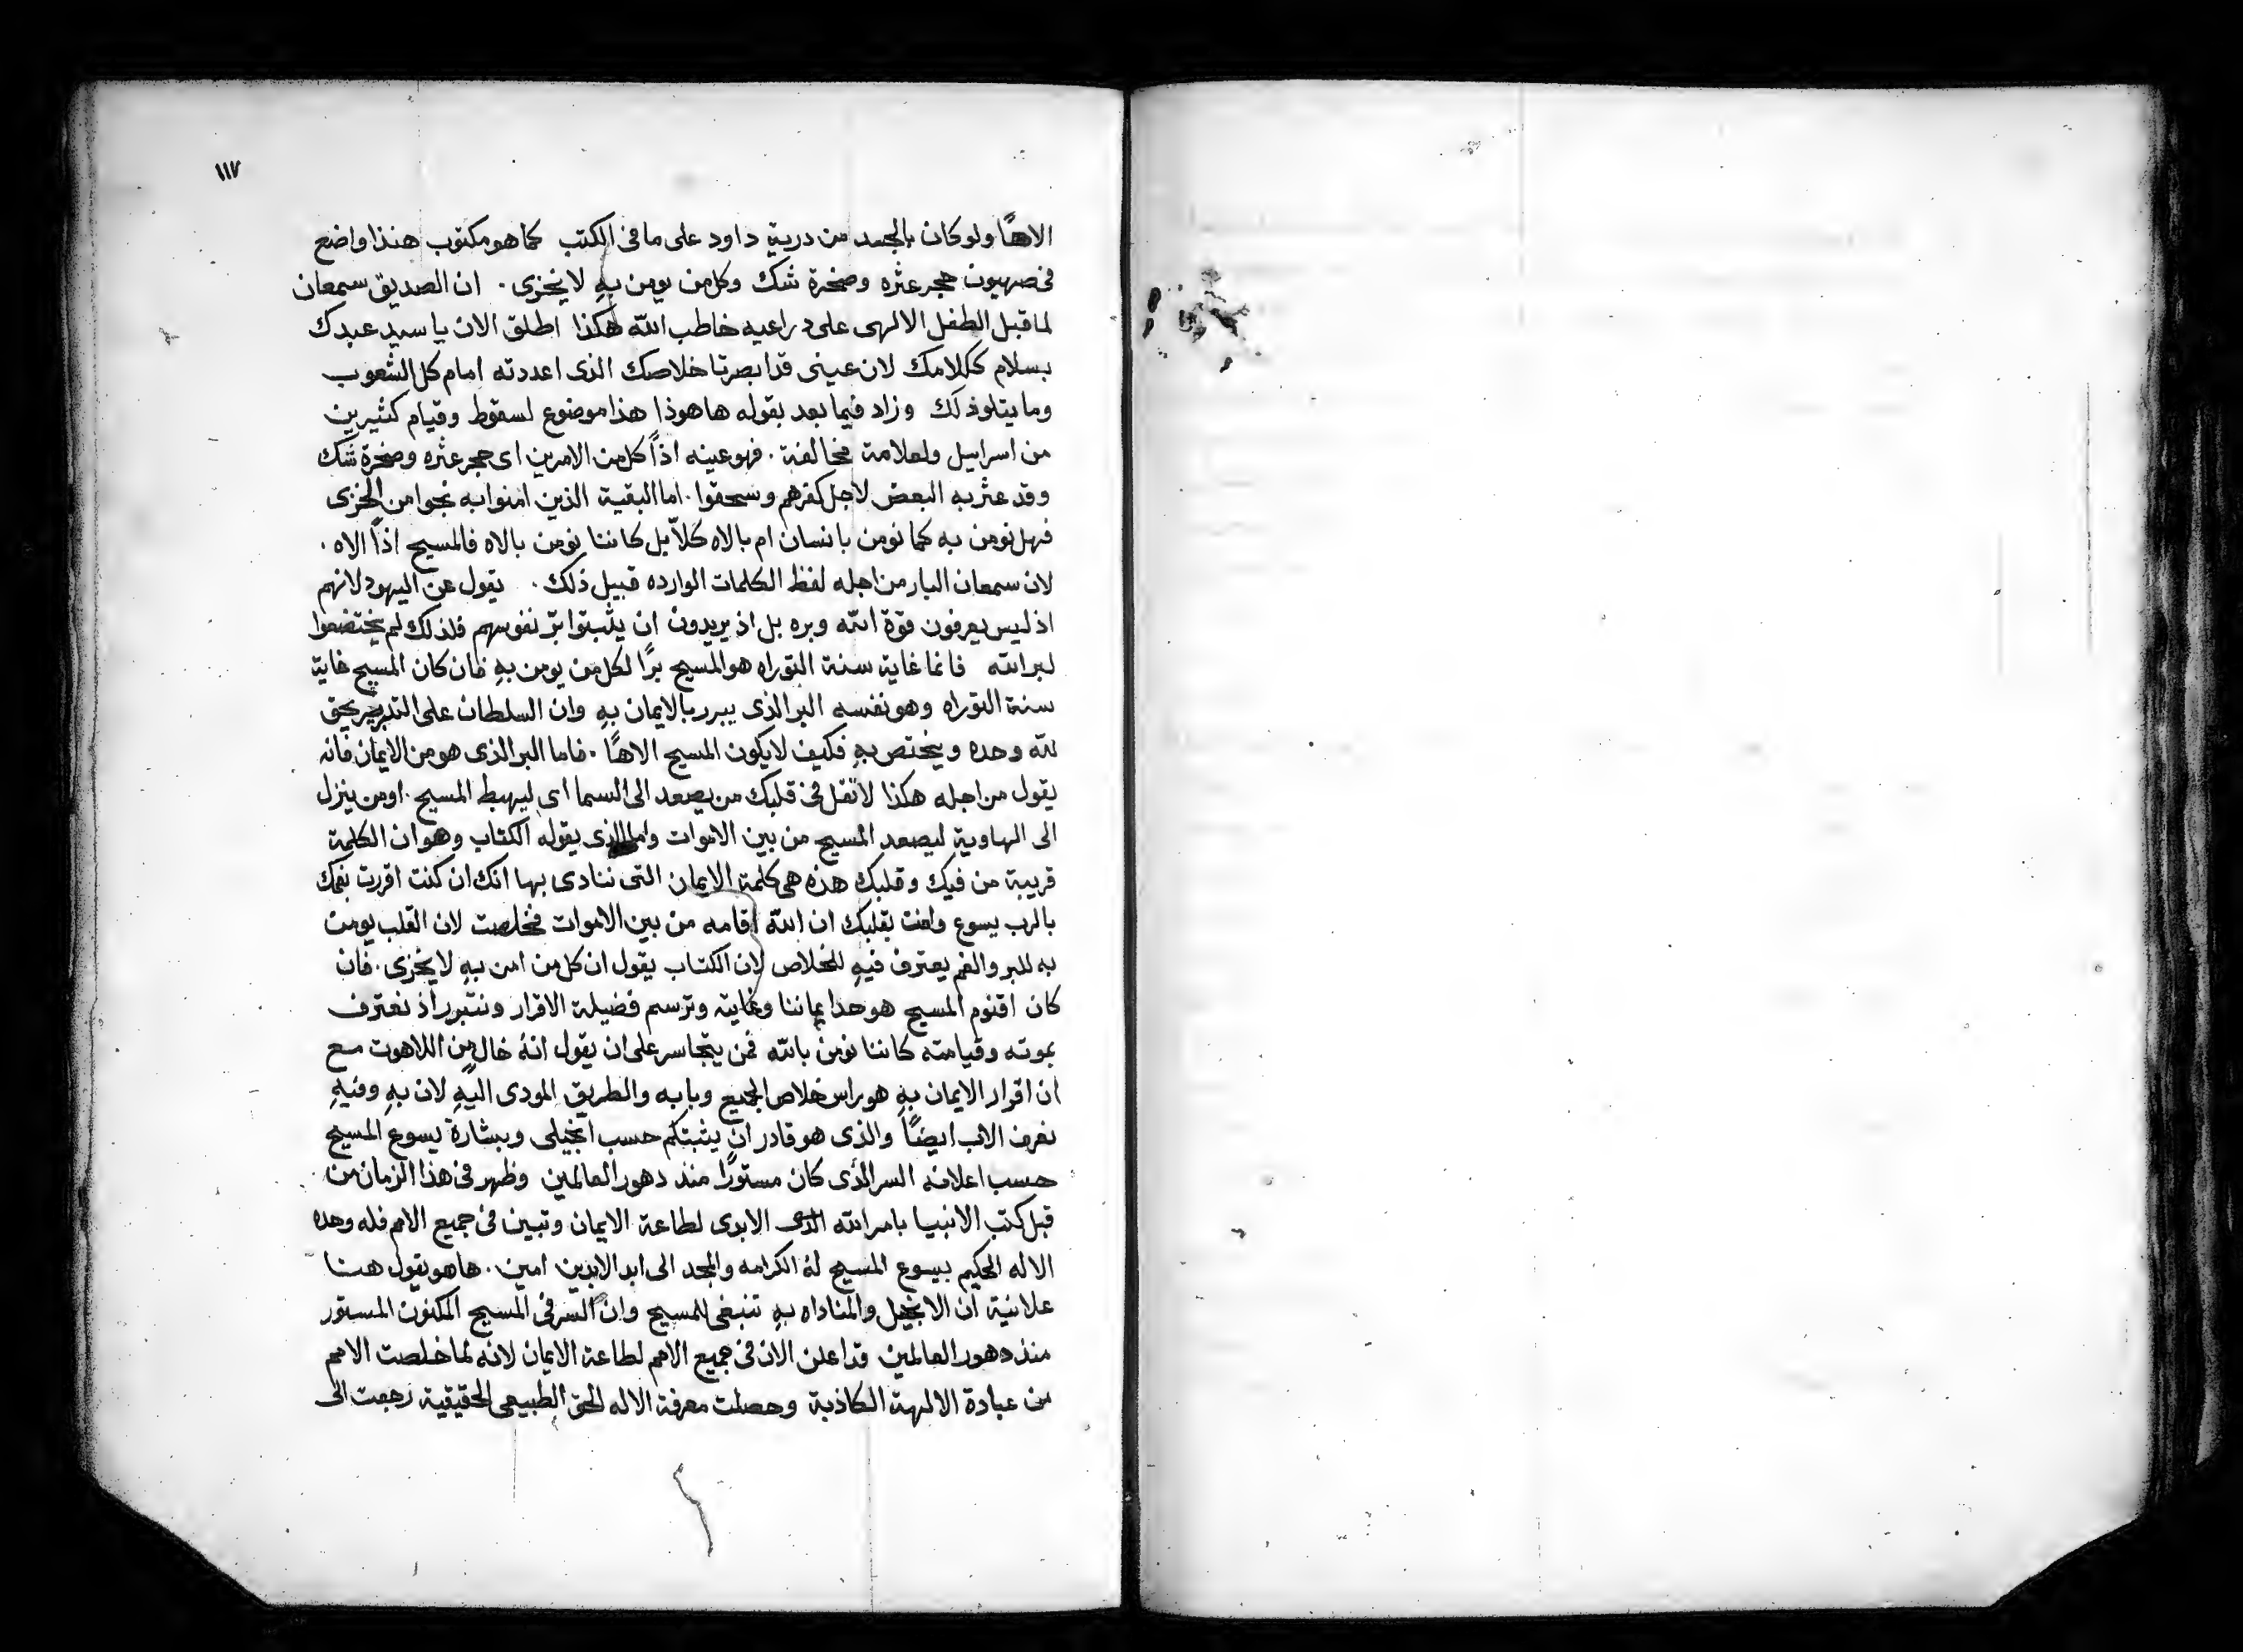 ١١٧
الاهًا ولو كان بالجسد من درية داود على ما فى الكتب كما هو مكتوب هنذا واضع
فى صهيون حجر عثره وصخرة شك وكل من يومن بهِ لا يخزى . ان الصديق سمعان
لما قبل الطفل الالهى على دراعيه خاطب الله هكذا اطلق الان يا سيد عبدك
بسلام ككلامك لان عينى قد ابصرتا خلاصك الذى اعددته امام كل الشعوب
وما يتلو ذلك وزاد فيما بعد بقوله ها هوذا هذا موضوع لسقوط وقيام كثيرين
من اسراييل ولعلامة مخالفة . فهو عينه اذًا كل من الامرين اى حجر عثره وصخرة شك
وقد عثر به البعض لاجل كفرهم وسحقوا . اما البقية الذين امنوا به نجوا من الخزى
فهل نومن به كما نومن بانسان ام بالاه كلّا بل كاننا نومن بالاه فالمسيح اذًا الاه .
لان سمعان البار من اجله لفظ الكلمات الوارده قبيل ذلك . يقول عن اليهود لانهم
اذ ليس يعرفون قوة الله وبره بل اذ يريدون ان يثبتوا برّ نفوسهم فلذلك لم يختضعوا
لبر الله فانما غاية سنة التوراه هو المسيح برًا لكل من يومن بهِ فان كان المسيح غاية
سنة التوراه وهو نفسه البر الذى يبرر بالايمان بهِ وان السلطان على التبرير يحق
لله وحده ويختص بهِ فكيف لا يكون المسيح الاهًا . فاما البر الذى هو من الايمان فانه
يقول من اجله هكذا لا تقل فى قلبك من يصعد الى السما اى ليهبط المسيح . او من ينزل
الى الهاوية ليصعد المسيح من بين الاموات وما الذى يقوله الكتاب وهو ان الكلمة
قريبة من فيك وقلبك هذه هى كلمة الايمان التى ننادى بها انك ان كنت اقررت بفمك
بالرب يسوع وامنت بقلبك ان الله اقامه من بين الاموات فخلصت لان القلب يومن
به للبر والفم يعترف فيهِ للخلاص لان الكتاب يقول ان كل من امن بهِ لا يخزى . فان
كان اقنوم المسيح هو حد ايماننا وغايته وترسم فضيلة الاقرار ونتبرر اذ نعترف
بموته وقيامته كاننا نومن بالله فمن يتجاسر على ان يقول انهُ خالٍ من اللاهوت مع
ان اقرار الايمان بهِ هو راس خلاص الجميع وبابه والطريق المودى اليهِ لان بهِ وفيهِ
نعرف الاب ايضًا والذى هو قادر ان يثبتكم حسب انجيلى وبشارة يسوع المسيح
حسب اعلانه السر الذى كان مستورًا منذ دهور العالمين وظهر فى هذا الزمان من
قبل كتب الانبيا بامر الله الابدى لطاعة الايمان وتبين فى جميع الامم فله وحده
الاله الحكيم بيسوع المسيح لهُ الكرامه والمجد الى ابد الابدين امين . ها هو يقول هنا
علانية ان الانجيل والمناداه بهِ تنبغى للمسيح وان السر فى المسيح المكنون المستور
منذ دهور العالمين قد اعلن الان فى جميع الامم لطاعة الايمان لانه لما خلصت الامم
من عبادة الالهة الكاذبة وحصلت معرفة الاله الحق الطبيعى الحقيقية رجعت الى